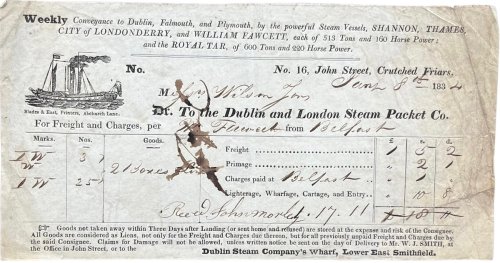 Weekly Conveyance to Dublin, Falmouth, and Plymouth, by the powerful Steam Vessels, SHANNON, THAMES,
CITY of LONDONDERRY, and WILLIAM FAWCETT, each of 513 Tons and 160 Horse Power;
and the ROYAL TAR, of 600 Tons and 220 Horse Power.
No.
No. 16, John Street, Crutched Friars,
8th 1834
M Wilson
Blades & East, Printers, Abchurch Lane.
Dr. To the Dublin and London Steam Packet Co.
For Freight and Charges, per Wm Fawcett from Belfast
Marks. Nos. Goods. £
I W 3 2 Boxes Freight 1 5 2
Primage 2
I W 25 Charges paid at Belfast 1
Lighterage, Wharfage, Cartage, and Entry 10 8
Recd John Morley 1. 17. 11 1 18
Goods not taken away within Three Days after Landing (or sent home and refused) are stored at the expense and risk of the Consignee.
All Goods are considered as Liens, not only for the Freight and Charges due thereon, but for all previously unpaid Freight and Charges due by
the said Consignee. Claims for Damage will not be allowed, unless written notice be sent on the day of Delivery to Mr. W. J. SMITH, at
the Office in John Street, or to the Dublin Steam Company's Wharf, Lower East Smithfield.